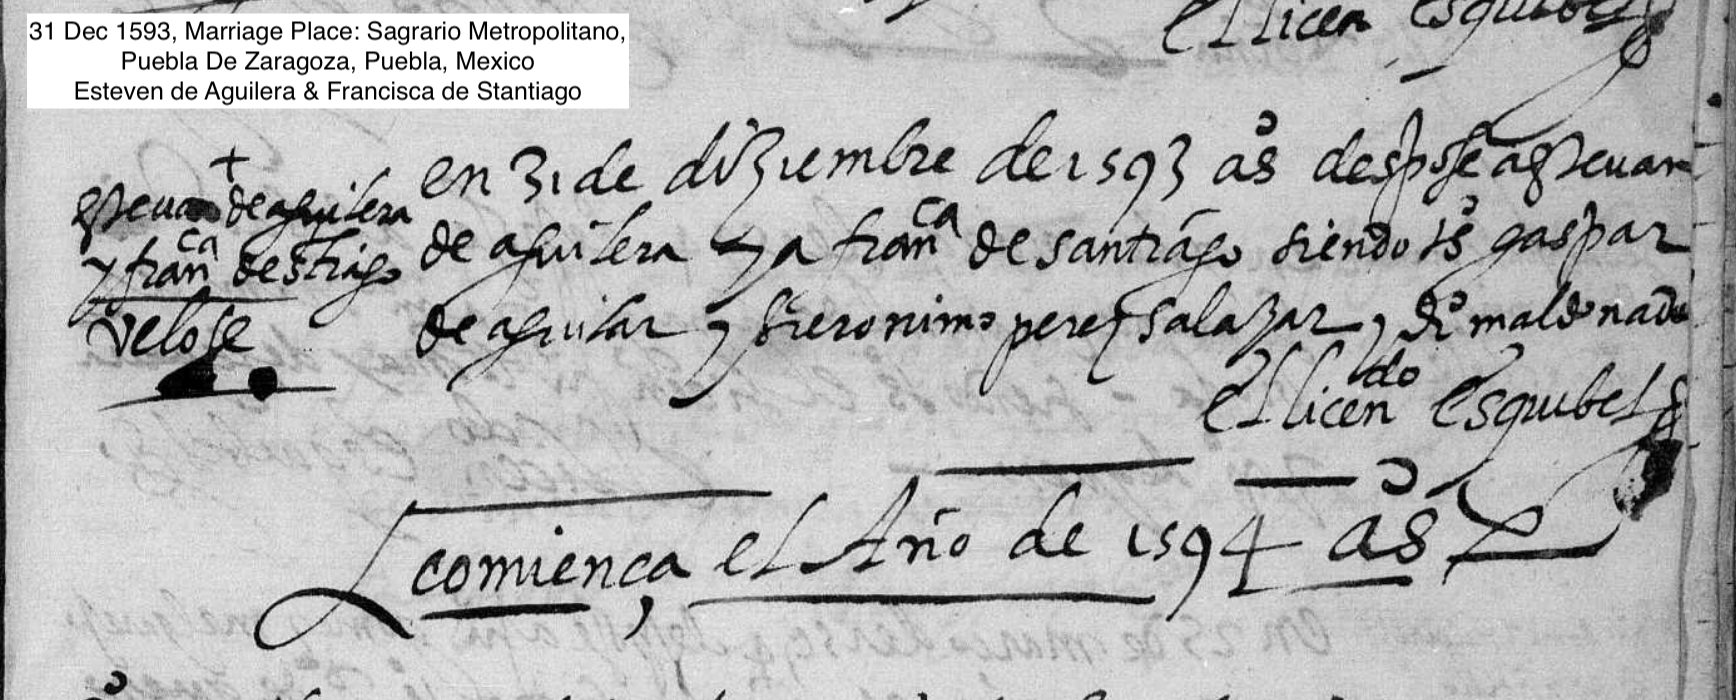 31 Dec 1593, Marriage Place: Sagrario Metropolitano,
Puebla De Zaragoza, Puebla, Mexico
Esteven de Aguilera & Francisca de Stantiago
el licen esquibel
en 31 de diziembre de 1593 aºs despose a estevan
de aguilera y a franca de santiago siendo tºs gaspar
de aguilar y hieronimo perez salazar y dºi maldonado
el licendo esquibel
estevan de aguilera
y franca de stiago
velose
comiença el Año de 1594 aºs